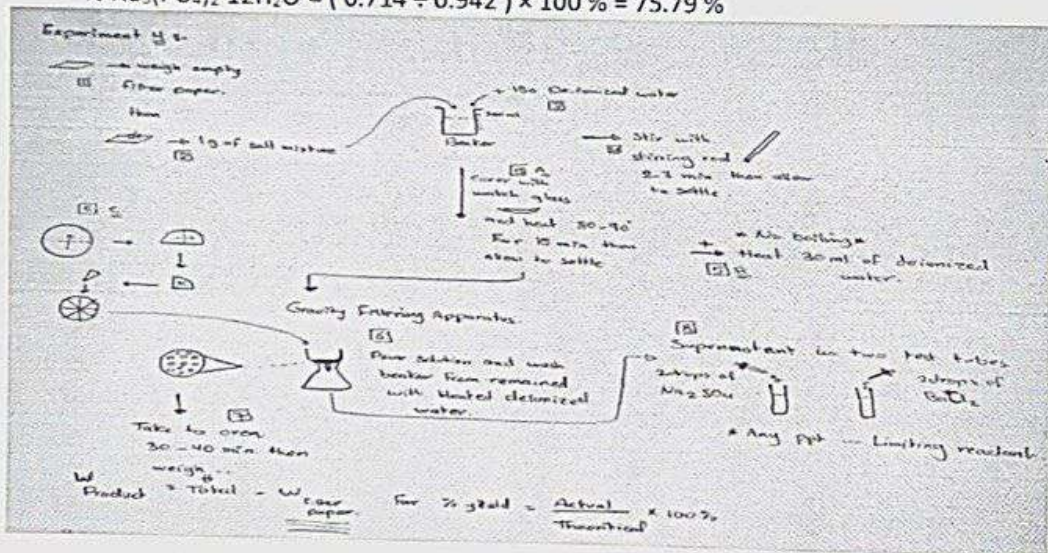 ( 0.714 ÷ 0.942 ) × 100 % = 75.79 %
Experiment
→ weigh empty
[1] filter paper.
then
→ 1g of salt mixture
[2]
Deionized water
[3]
Beaker
→ Stir with
stirring rod
2-3 min then allow
to settle
[5] A
cover with
watch glass
and heat
For 15 min then
allow to settle
* No boiling *
Heat 30 ml of deionized
[5] B water.
[5] C
Gravity Filtering Apparatus.
[6]
Pour solution and wash
beaker from remained
with Heated deionized
water.
[7]
Take to oven
30-40 min then
weigh
[8]
Supernatant in two test tubes
2 drops of
Na2SO4
2 drops of
BaCl2
* Any ppt Limiting reactant
W Product = Total - W filter paper.
For % yield = Actual / Theoretical × 100%